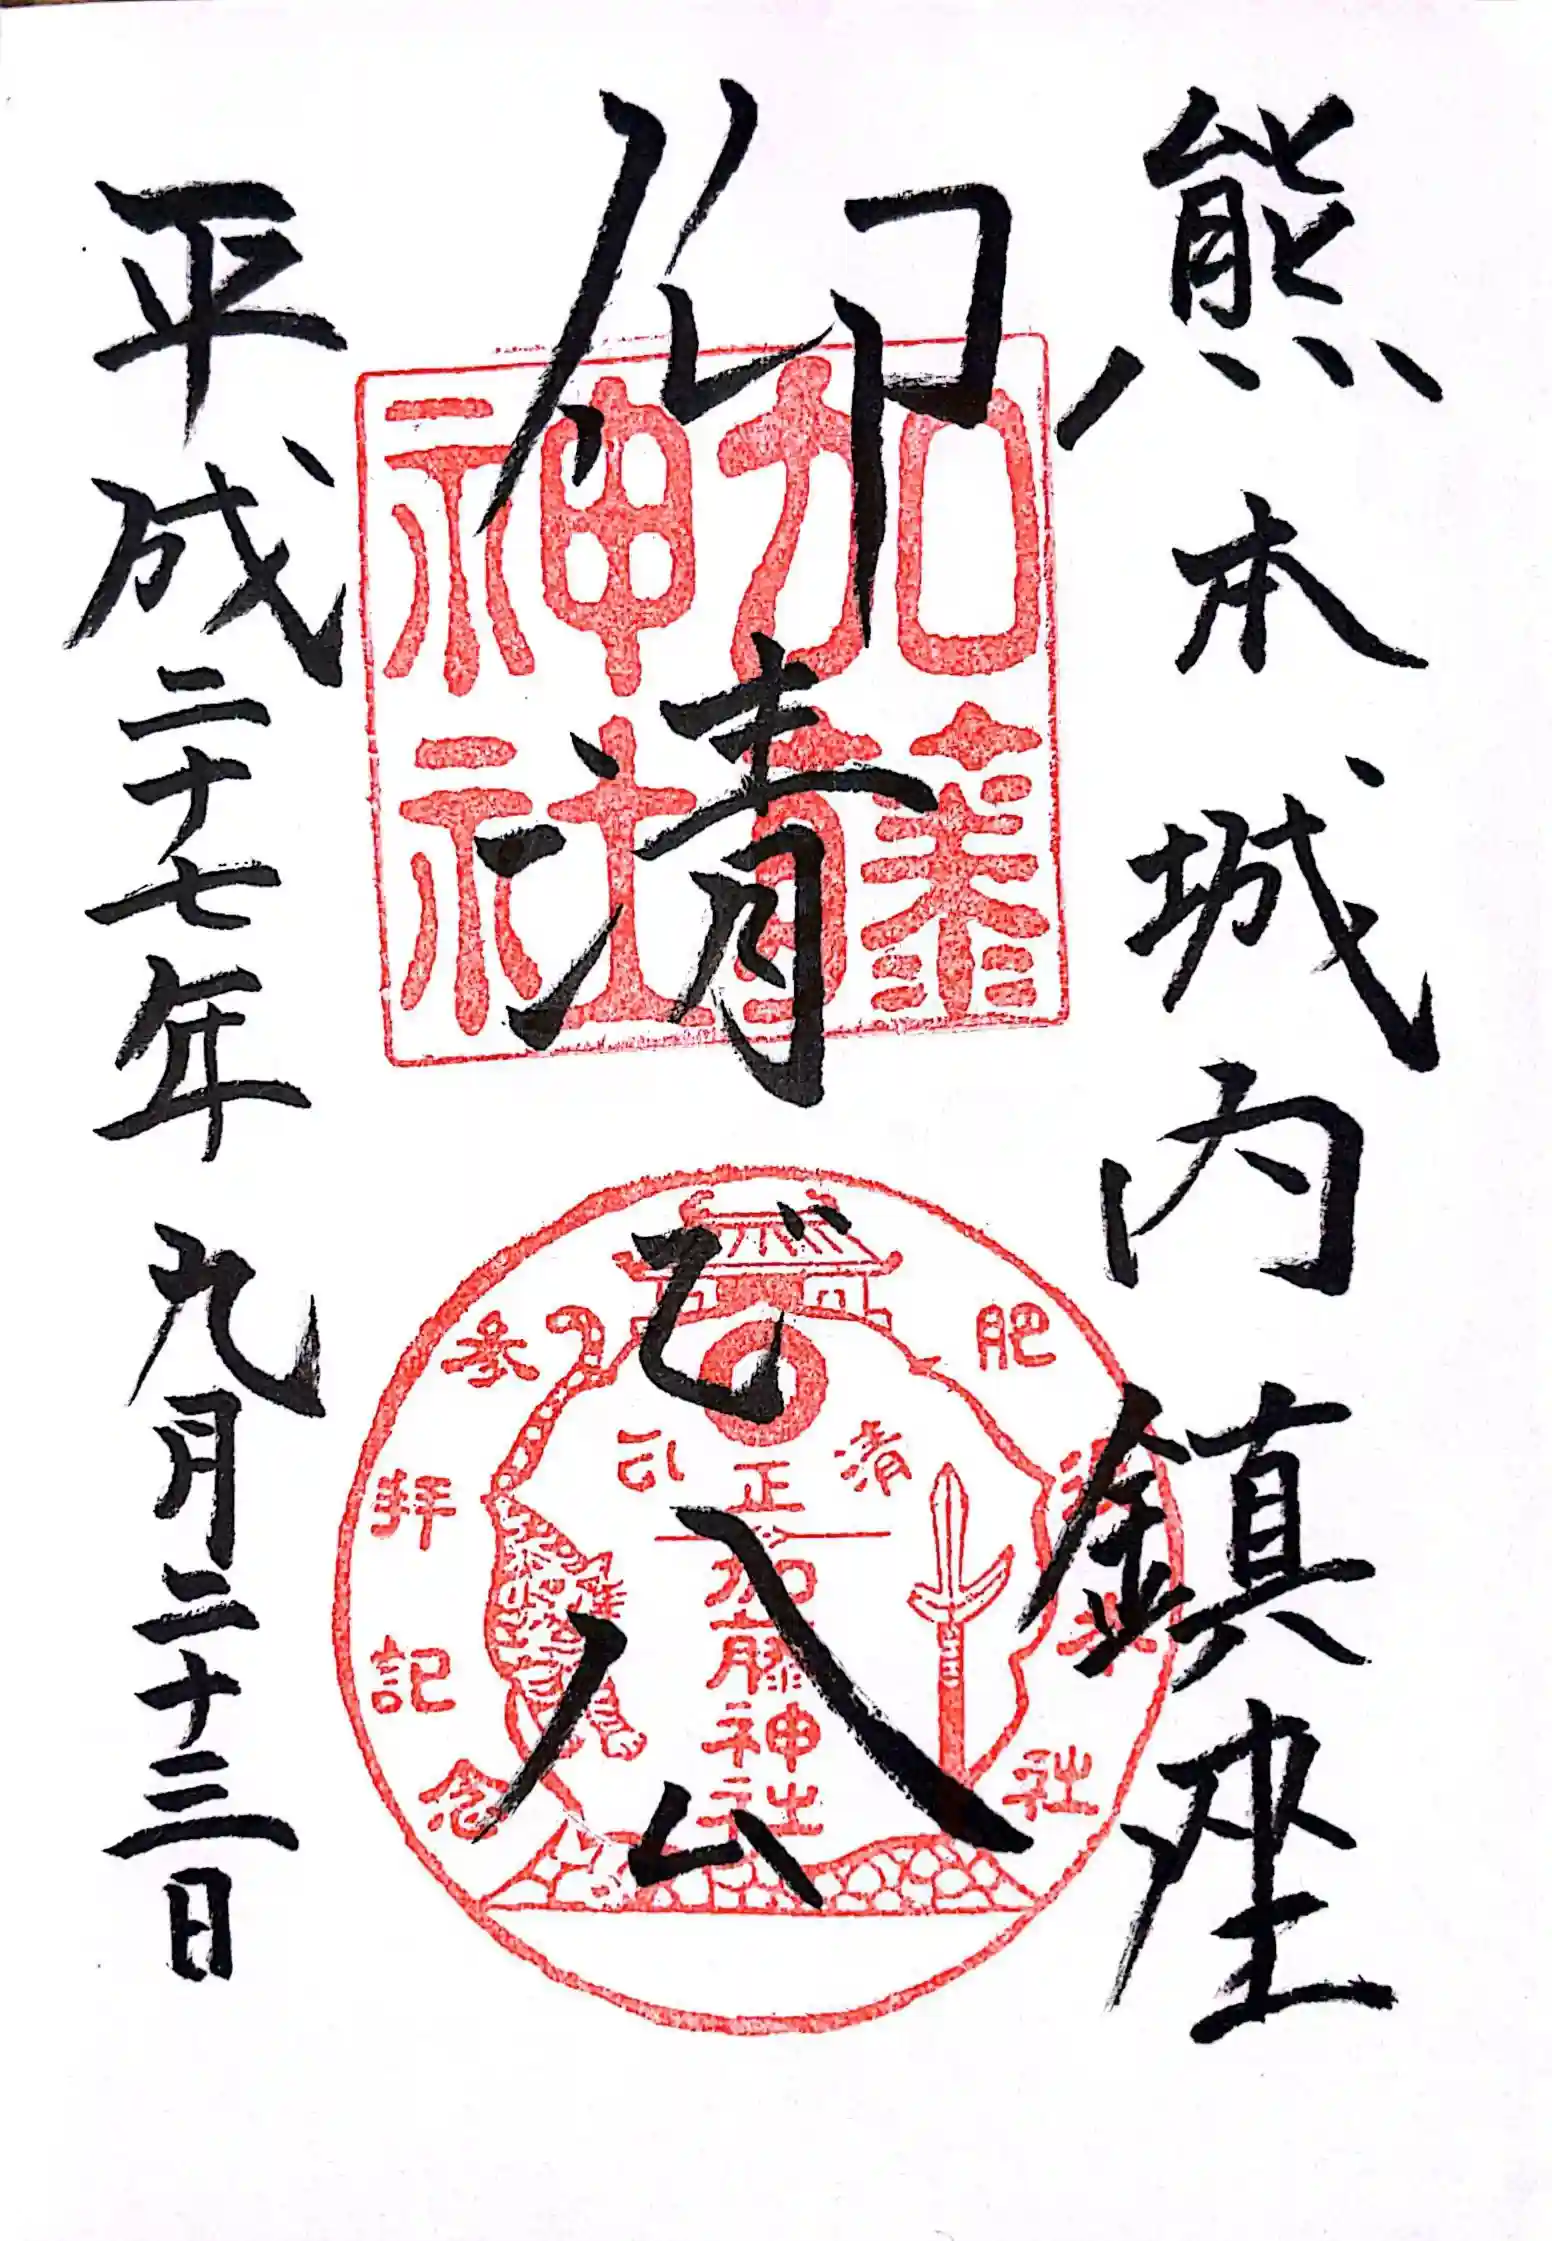 熊本城内鎮座
仰清正公
平成二十七年九月二十三日
加藤神社
肥 社
参拝記念
清正公
加藤神社